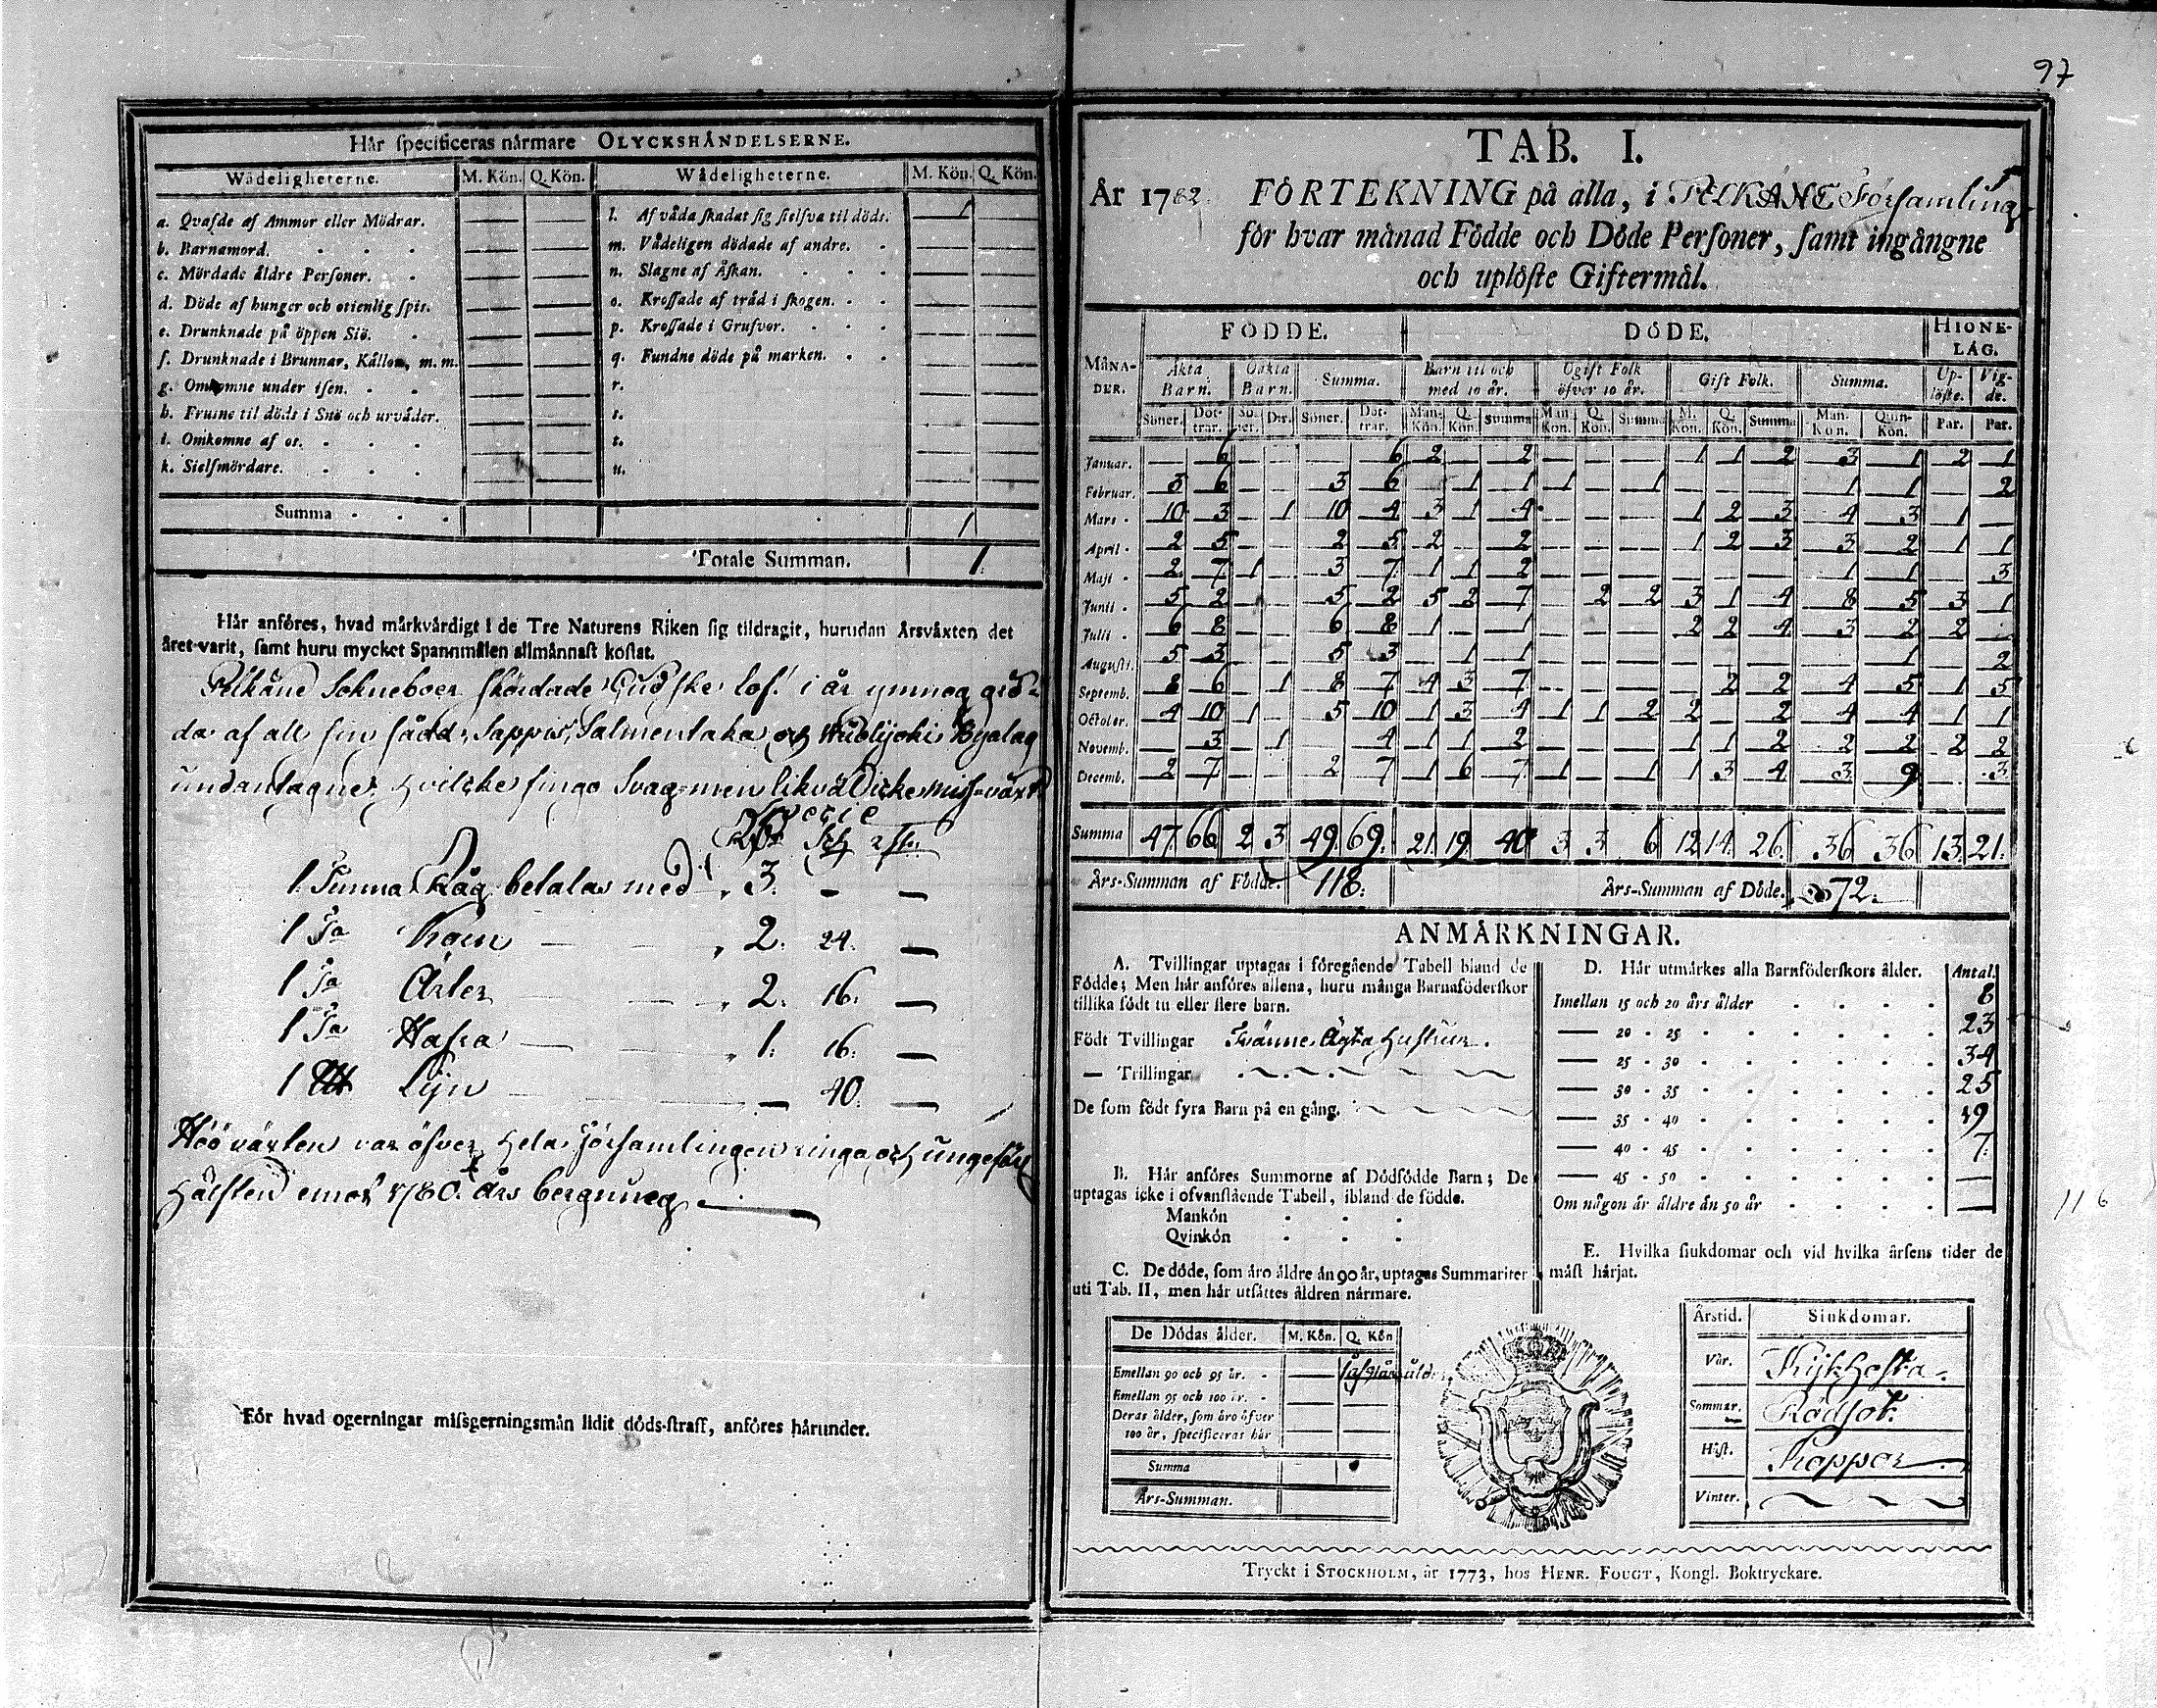 97
Här specificeras närmare OLYCKSHÄNDELSERNE.
Wådeligheterne. M. Kön. Q. Kön. Wådeligheterne. M. Kön. Q. Kön.
a. Qvafde af Ammor eller Mödrar. — — l. Af våda skadat sig sielfva til döds. 1 —
b. Barnamord. — — m. Vådeligen dödade af andre. — —
c. Mördade äldre Personer. — — n. Slagne af Åskan. — —
d. Döde af hunger och otienlig spis. — — o. Krossade af träd i skogen. — —
e. Drunknade på öppen Siö. — — p. Krossade i Grufvor. — —
f. Drunknade i Brunnar, Källor, m. m. — — q. Fundne döde på marken. — —
g. Omkomne under isen. — — r. — —
h. Frusne til döds i Snö och urväder. — — s. — —
i. Omkomne af os. — — t. — —
k. Sielfmördare. — — u. — —
Summa 1
Totale Summan. 1.
Här anföres, hvad märkvärdigt i de Tre Naturens Riken sig tildragit, hurudan Årsväxten det
året varit, samt huru mycket Spannmålen allmännast kostat.
Pelkäne Sokneboer skördade Gud ske lof! i år ymnog grö-
da af all sin säd, Sappis, Salmentaka och Byalag
undantagne, hvilcke fingo Svag men likväl icke missväxt.
1. Tunna Råg betalas med 3. — —
1 Ta Korn — — 2. 24. —
1 Ta Ärter — — 2. 16. —
1 Ta Hafra — — 1. 16. —
1 Lijn — — 40. —
Höö växten var öfver hela Församlingen ringa och ungefär
Hälften emot 1780. års bergning
För hvad ogerningar missgerningsmän lidit döds-straff, anföres härunder.
TAB. I.
År 1782. FÖRTEKNING på alla, i PELKÄNE Församling
för hvar månad Födde och Döde Personer, samt ingångne
och uplöste Giftermål.
MÅNA-DER. FÖDDE. DÖDE. HIONE-LAG.
Äkta Barn. Oäkta Barn. Summa. Barn til och med 10 år. Ogift Folk öfver 10 år. Gift Folk. Summa. Up-löste. Vig-de.
Söner. Döt-trar. Sö-ner. Dtr. Söner. Döt-trar. Man-Kön. Q. Kön. Summa Man-Kön. Q. Kön. Summa M. Kön. Q. Kön. Summa Man-Kön. Quin-Kön. Par. Par.
Januar. — 6 — — — 6 2 — 2 — — — 1 1 2 3 1 2 1
Februar. 3 6 — — 3 6 — 1 1 1 — 1 — — — 1 1 — 2
Mars 10 3 — 1 10 4 3 1 4 — — — 1 2 3 4 3 1 —
April 2 5 — — 2 5 2 — 2 — — — 1 2 3 3 2 1 1
Maji 2 7 1 — 3 7 1 1 2 — — — — — — 1 1 — 3
Junii 5 2 — — 5 2 5 2 7 — 2 2 3 1 4 8 5 3 1
Julii 6 8 — — 6 8 1 — 1 — — — 2 2 4 3 2 2 —
Augusti. 5 3 — — 5 3 — 1 1 — — — — — — — 1 — 2
Septemb. 8 6 — 1 8 7 4 3 7 — — — — 2 2 4 5 1 5
October. 4 10 1 — 5 10 1 3 4 1 1 2 2 — 2 4 4 1 1
Novemb. — 3 — 1 — 4 1 1 2 — — — 1 1 2 2 2 2 2
Decemb. 2 7 — — 2 7 1 6 7 1 — 1 1 3 4 3 9 — 3
Summa 47. 66. 2 3 49. 69. 21. 19. 40 3 3 6 12 14. 26. 36 36 13. 21.
Års-Summan af Födde. 118. Års-Summan af Döde. 72.
ANMÄRKNINGAR.
A. Tvillingar uptagas i föregående Tabell bland de
Födde; Men här anföres allena, huru många Barnaföderskor
tillika födt tu eller flere barn.
Födt Tvillingar Tvänne Ägta Hustrur.
— Trillingar
De som födt fyra Barn på en gång.
B. Här anföres Summorne af Dödfödde Barn; De
uptagas icke i ofvanstående Tabell, ibland de födde.
Mankön
Qvinkön
C. De döde, som äro äldre än 90 år, uptagas Summariter
uti Tab. II, men här utsättes åldren närmare.
De Dödas ålder. M. Kön. Q. Kön
Emellan 90 och 95 år. — 1 af 91 års åld.
Emellan 95 och 100 år. — —
Deras ålder, som äro öfver
100 år, specificeras här — —
Summa
Års-Summan.
D. Här utmärkes alla Barnföderskors ålder. Antal.
Imellan 15 och 20 års ålder 8
— 20 - 25 23
— 25 - 30 34
— 30 - 35 25
— 35 - 40 19
— 40 - 45 7.
— 45 - 50 —
Om någon är äldre än 50 år —
E. Hvilka siukdomar och vid hvilka årsens tider de
mäst härjat.
Årstid. Siukdomar.
Vår. Kijkhosta.
Sommar. Rödsot.
Höst. Koppor
Vinter.
Tryckt i STOCKHOLM, år 1773, hos HENR. FOUGT, Kongl. Boktryckare.
116